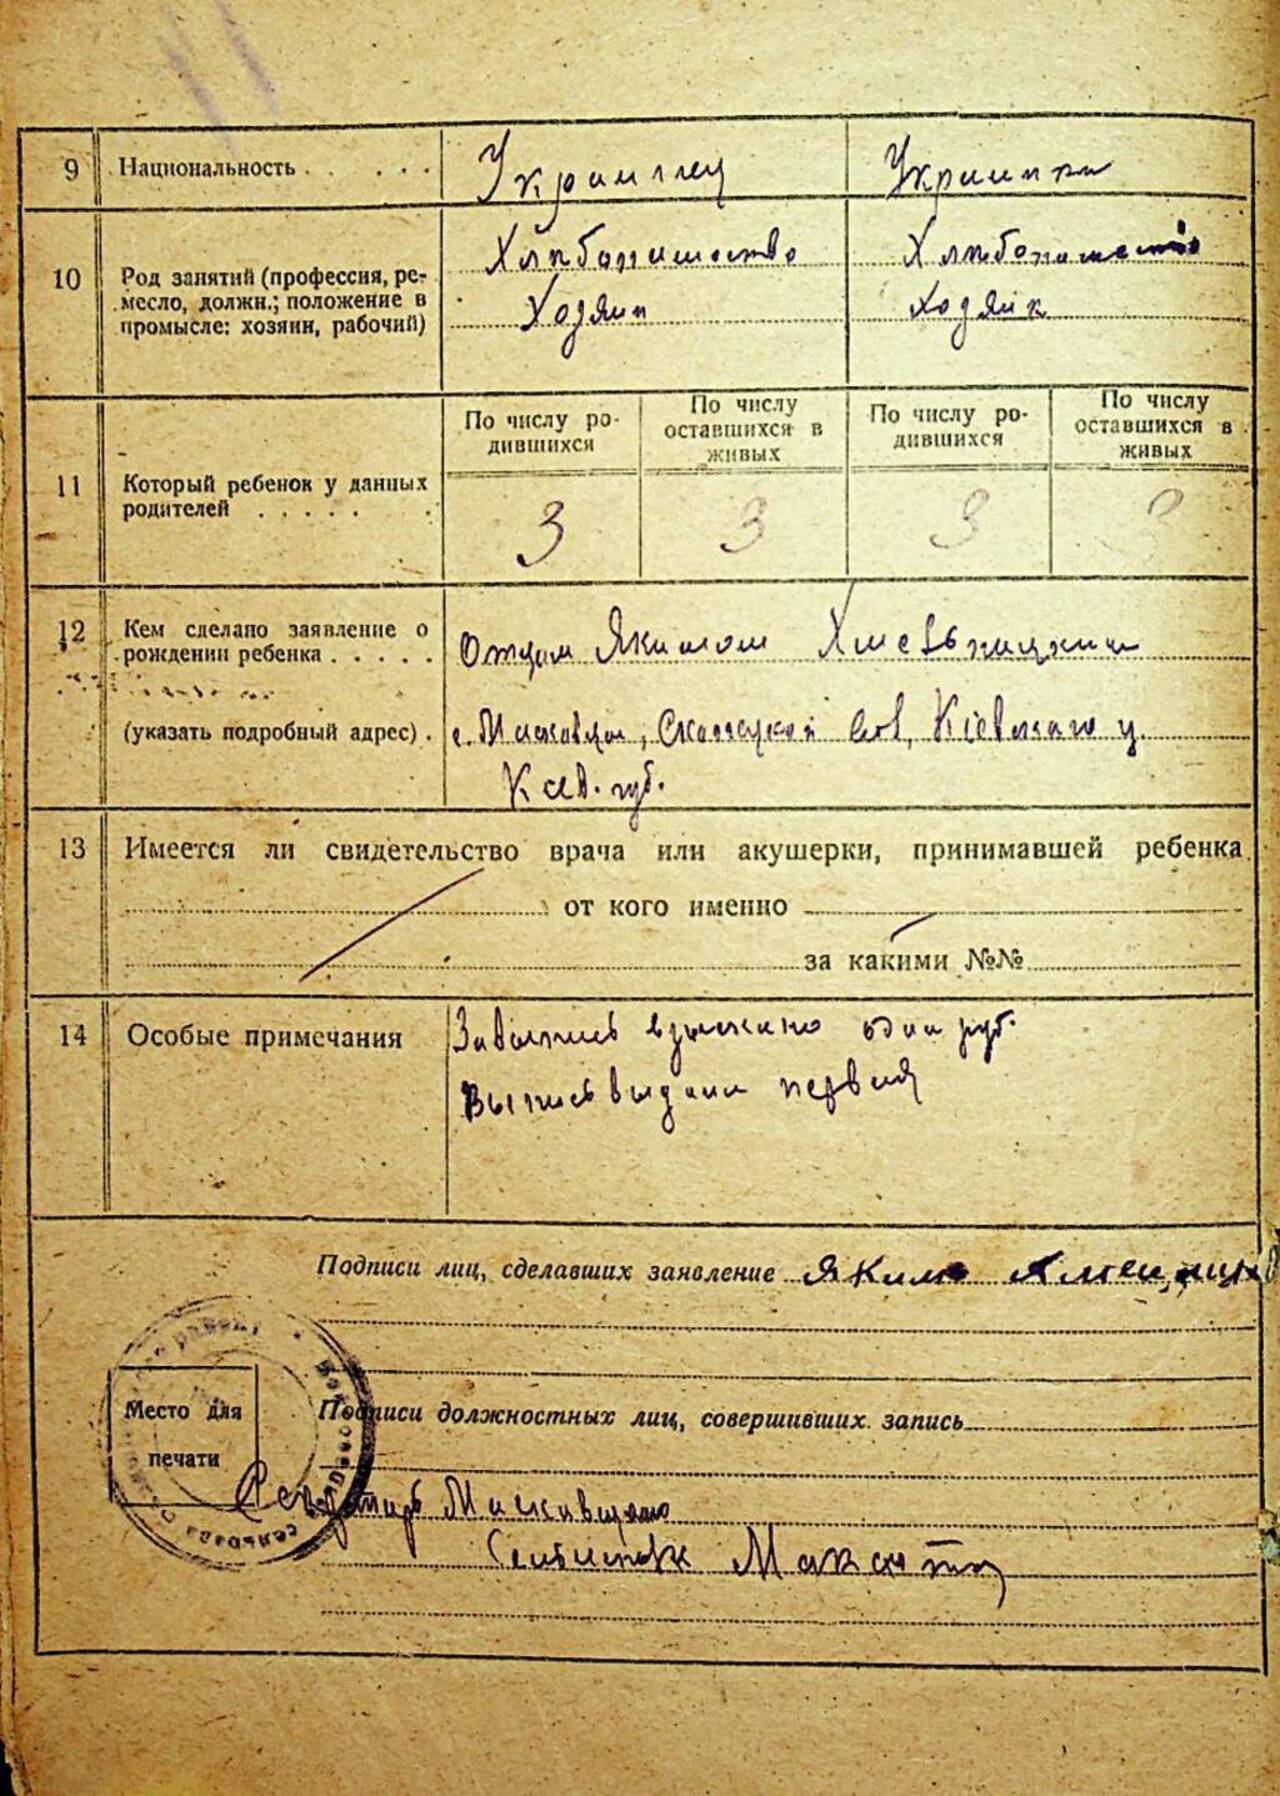 9 Национальность . . . . . Украинец Украинка
10 Род занятий (профессия, ре-
месло, должн.; положение в
промысле: хозяин, рабочий)
Хлебопашество
Хозяин
Хлебопашество
Хозяйк
11 Который ребенок у данных
родителей . . . . . .
По числу ро-
дившихся
По числу
оставшихся в
живых
По числу ро-
дившихся
По числу
оставшихся в
живых
3 3 3
12 Кем сделано заявление о
рождении ребенка . . . . .
(указать подробный адрес) .
Отцом Якимом Хмельницким
с. , вол, Кіевскаго у.
Киев. губ.
13 Имеется ли свидетельство врача или акушерки, принимавшей ребенка
от кого именно
за какими №№
14 Особые примечания
взыскано один руб.
Выпись выдана первая
Подписи лиц, сделавших заявление Яким
Место для
печати
Подписи должностных лиц, совершивших запись
Секретарь